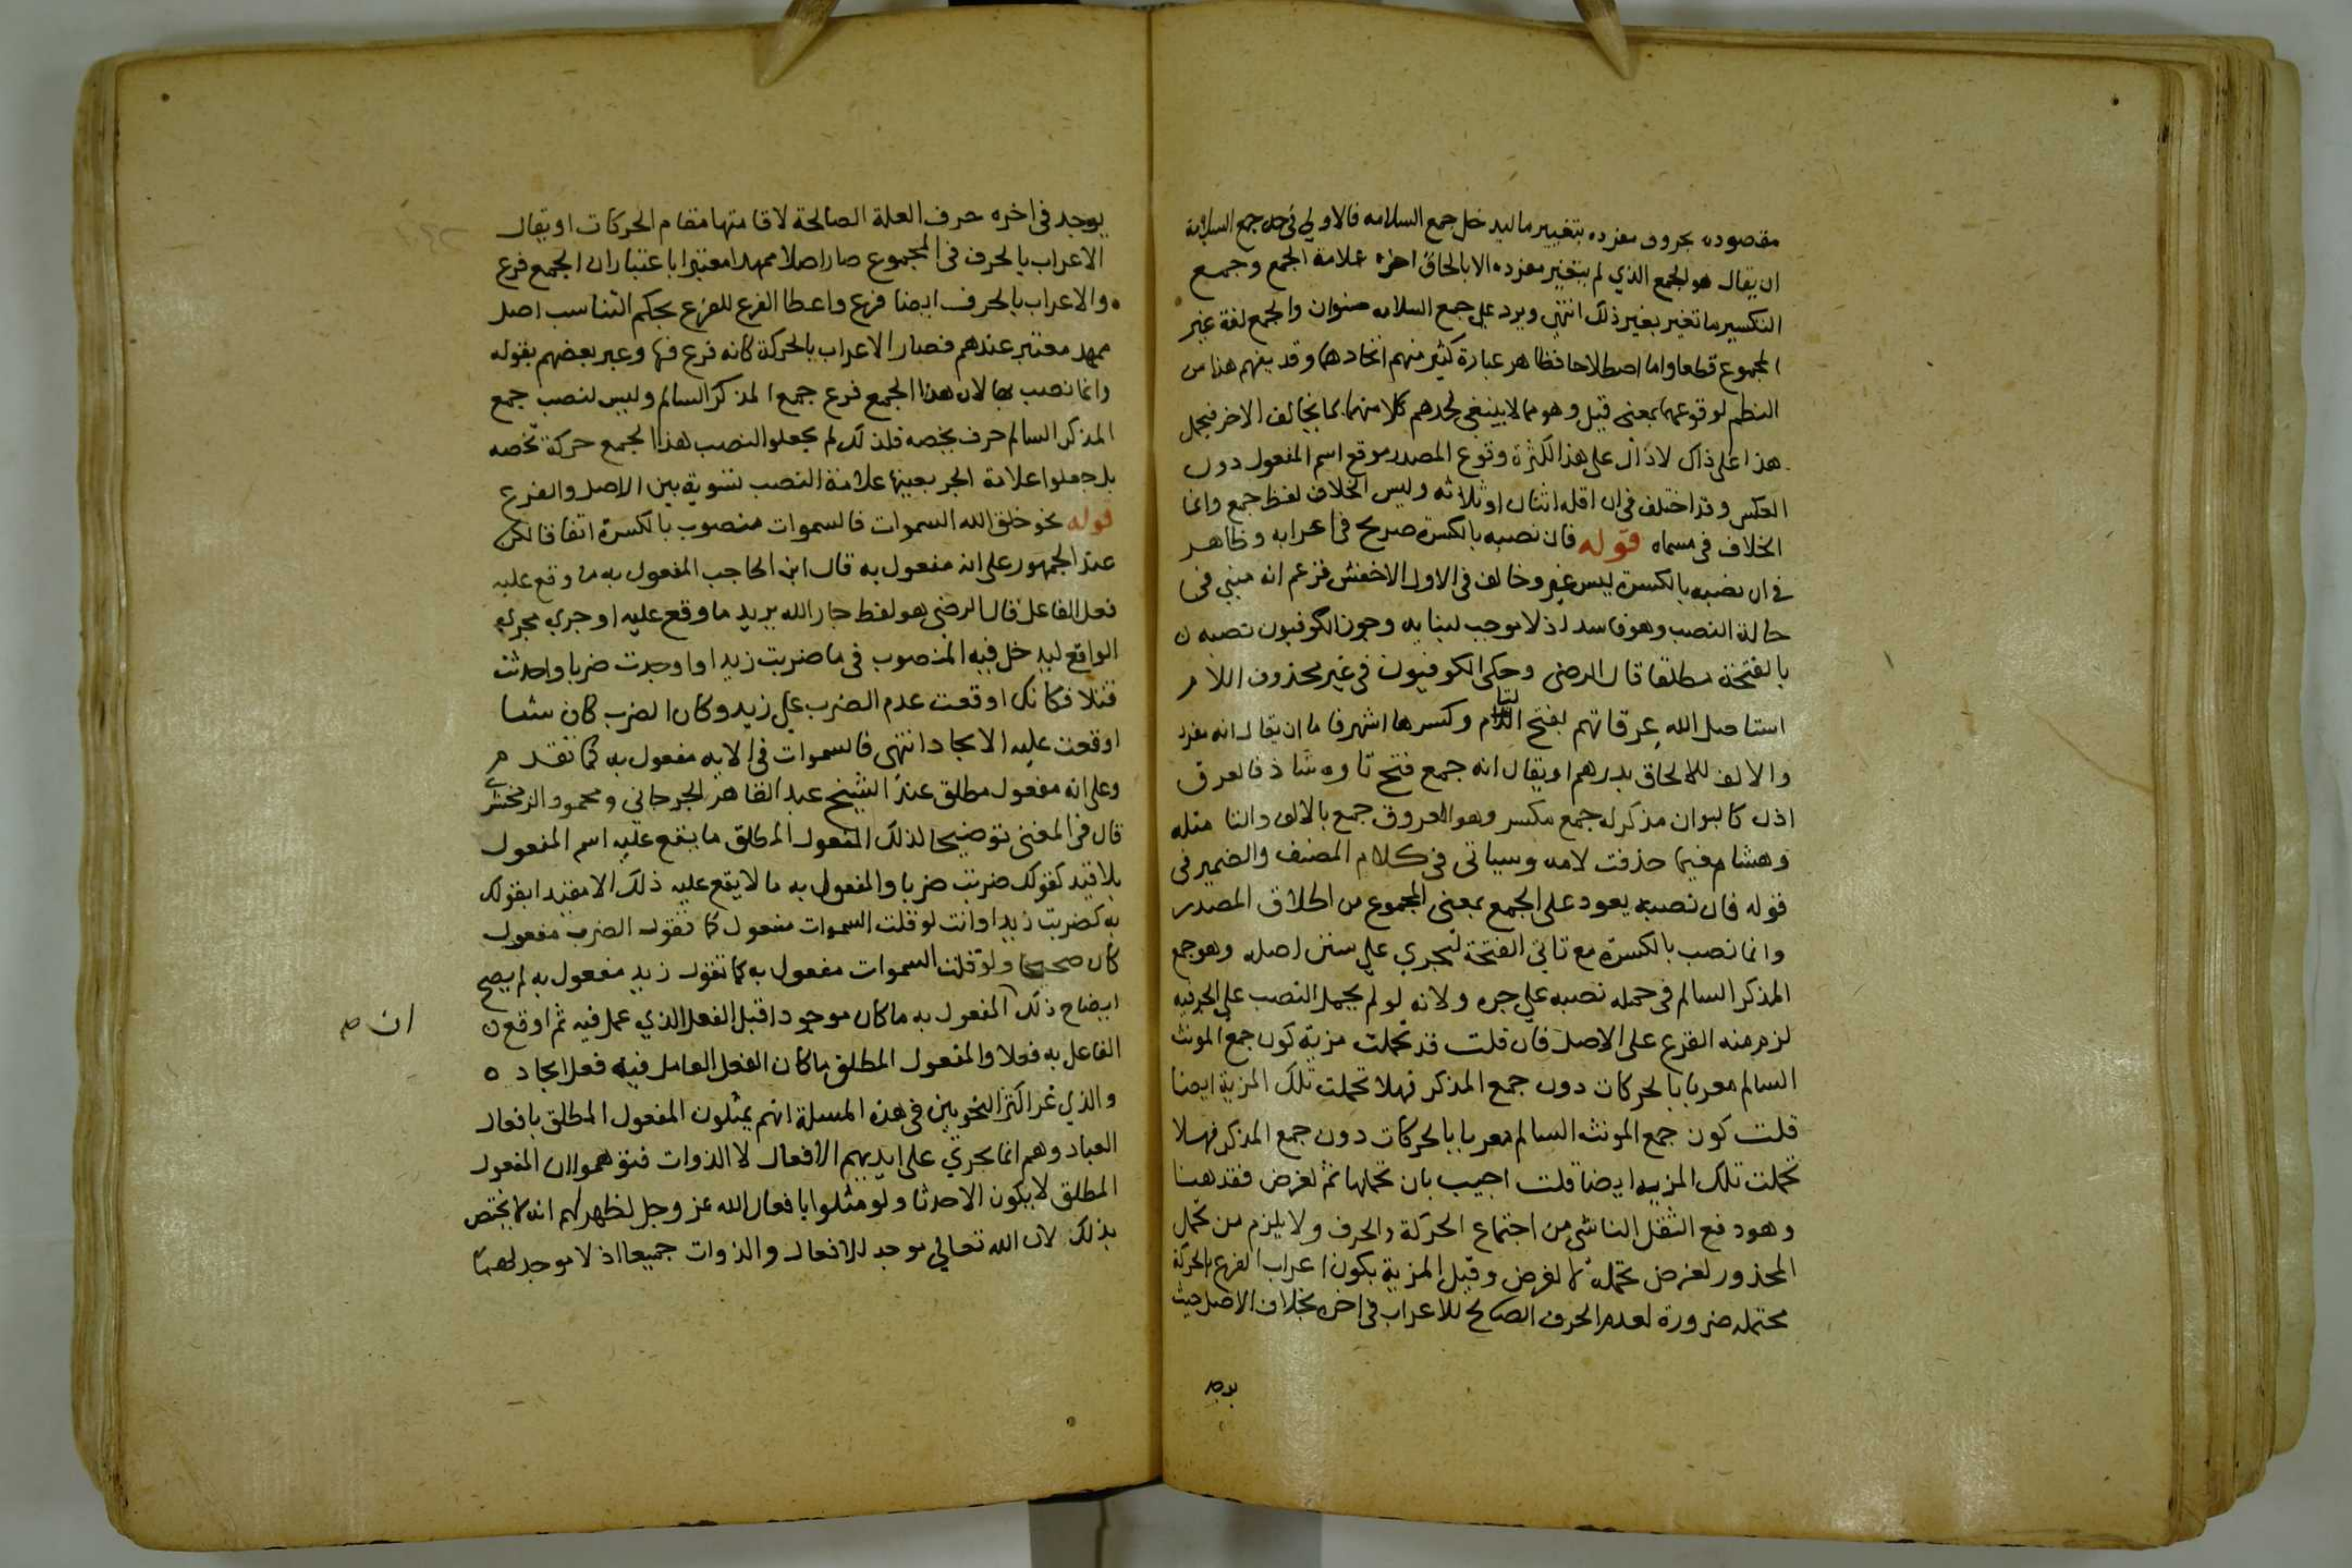 مقصوده بحروف مفرده بتغيير ما ليدخل جمع السلامه فالاولي في حد جمع السلامة
ان يقال هو الجمع الذي لم يتغير مفرده الا بالحاق اخره علامة الجمع وجمع
التكسير ما تغير بغير ذلك انتهي ويرد علي جمع السلامه صنوان والجمع لغة غير
المجموع قطعا واما اصطلاحا فظاهر عبارة كثير منهم اتحادهما وقد يفهم هذا من
النظم لوقوعهما بمعنى قيل وهو مما لا ينبغي لحدهم كلا منهما بما يخالف الاخر فيحمل
هذا على ذاك لا ذاك على هذا لكثرة وقوع المصدر موقع اسم المفعول دون
العكس وقد اختلف في ان اقله اثنان او ثلاثه وليس الخلاف لفظ جمع وانما
الخلاف في مسماه قوله فان نصبه بالكسرة صريح في اعرابه وظاهر
في ان نصبه بالكسرة ليس غير وخالف في الاول الاخفش فزعم انه مبني في
حالة النصب وهو فاسد اذ لا موجب لبنايه وجوز الكوفيون نصبه
بالفتحة مطلقا قال الرضى وحكى الكوفيون في غير محذوف اللام
استاصل الله عرقاتهم بفتح التا وكسرها اشهر فاما ان يقال انه مفرد
والالف للالحاق بدرهم او يقال انه جمع فتح تاوه شاذ فالعرق
اذن كالبوان مذكر له جمع مكسر وهو العروق جمع بالالف والتا مثله
وهشام فيما حذفت لامه وسياتى فى كلام المصنف والضمير فى
قوله فان نصبه يعود على الجمع بمعنى المجموع من اطلاق المصدر
وانما نصب بالكسرة مع تاتى الفتحة ليجري علي سنن اصله وهو جمع
المذكر السالم في حمله نصبه علي جره ولانه لو لم يحمل النصب على الجر فيه
لزم منه الفرع على الاصل فان قلت قد تحملت مزية كون جمع المونث
السالم معربا بالحركات دون جمع المذكر فهلا تحملت تلك المزية ايضا
قلت كون جمع المونث السالم معربا بالحركات دون جمع المذكر فهلا
تحملت تلك المزيه ايضا قلت اجيب بان تحملها ثم لغرض فقد هنا
وهو دفع الثقل الناشى من اجتماع الحركة والحرف ولا يلزم من تحمل
المحذور لغرض تحمله لا لغرض وقيل المزية بكون اعراب الفرع بالحركة
محتمله ضرورة لعدم الحرف الصالح للاعراب في اخره بخلاف الاصل حيث
يوجد فى اخره حرف العلة الصالحة لاقامتها مقام الحركات او يقال
الاعراب بالحرف فى المجموع صار اصلا ممهدا معتبرا باعتبار ان الجمع فرع
والاعراب بالحرف ايضا فرع واعطا الفرع للفرع بحكم التناسب اصل
ممهد معتبر عندهم فصار الاعراب بالحركة كانه فرع فيها وعبر بعضهم بقوله
وانما نصب بها لان هذا الجمع فرع جمع المذكر السالم وليس لنصب جمع
المذكر السالم حرف يخصه فلذلك لم يجعلوا لنصب هذا الجمع حركة تخصه
بل جعلوا علامة الجر بعينها علامة النصب تسوية بين الاصل والفرع
قوله نحو خلق الله السموات فالسموات منصوب بالكسرة اتفاقا لكن
عند الجمهور على انه مفعول به قال ابن الحاجب المفعول به ما وقع عليه
فعل الفاعل قال الرضى هو لفظ جار الله يريد ما وقع عليه او جري مجري
الواقع ليدخل فيه المنصوب في ما ضربت زيدا واوجدت ضربا واحدثت
قتلا فكانك اوقعت عدم الضرب علي زيد وكان الضرب كان شيا
اوقعت عليه الايجاد انتهى فالسموات فى الايه مفعول به كما تقدم
وعلى انه مفعول مطلق عند الشيخ عبد القاهر الجرجاني ومحمود الزمخشري
قال فى المغنى توضيحا لذلك المفعول المطلق ما يقع عليه اسم المفعول
بلا قيد كقولك ضربت ضربا والمفعول به ما لا يقع عليه ذلك الا مقيدا بقولك
به كضربت زيدا وانت لو قلت السموات مفعول كما تقول الضرب مفعول
كان صحيحا ولو قلت السموات مفعول به كما تقول زيد مفعول به لم يصح
ايضاح ذلك المفعول به ما كان موجودا قبل الفعل الذي عمل فيه ثم اوقع
ان صح
الفاعل به فعلا والمفعول المطلق ما كان الفعل العامل فيه فعل ايجاده
والذي غر اكثر النحويين فى هذه المسلة انهم يمثلون المفعول المطلق بافعال
العباد وهم انما يجري على ايديهم الافعال لا الذوات فتوهموا ان المفعول
المطلق لا يكون الا حدثا ولو مثلوا بافعال الله عز وجل لظهر لهم انه لا يختص
بذلك لان الله تعالي موجد للافعال والذوات جميعا اذ لا موجد لهما